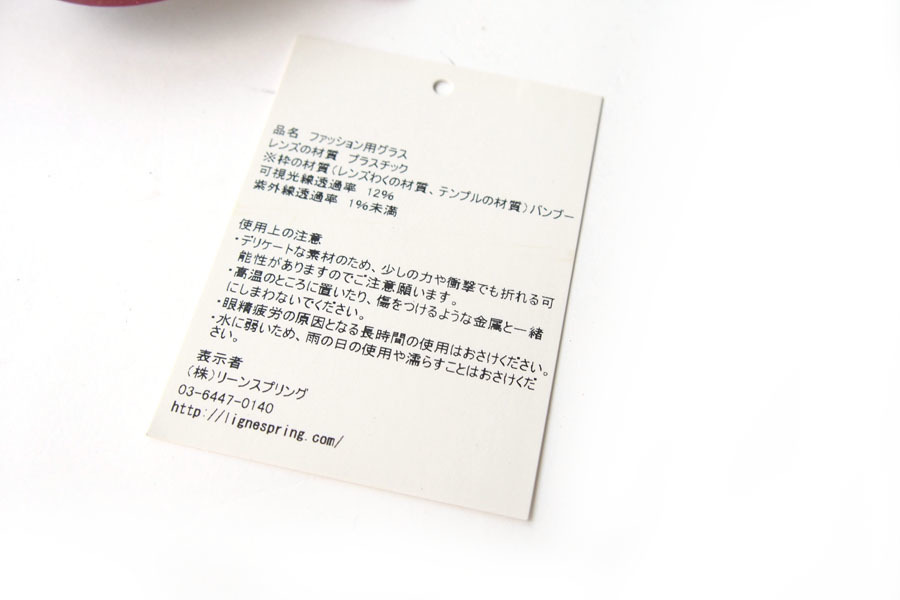 品名 ファッション用グラス
レンズの材質 プラスチック
※枠の材質(レンズわくの材質、テンプルの材質)バンブー
可視光線透過率 12%
紫外線透過率 1%未満
使用上の注意
・デリケートな素材のため、少しの力や衝撃でも折れる可
能性がありますのでご注意願います。
・高温のところに置いたり、傷をつけるような金属と一緒
にしまわないでください。
・眼精疲労の原因となる長時間の使用はおさけください。
・水に弱いため、雨の日の使用や濡らすことはおさけくだ
さい。
表示者
(株)リーンスプリング
03-6447-0140
http://lignespring.com/